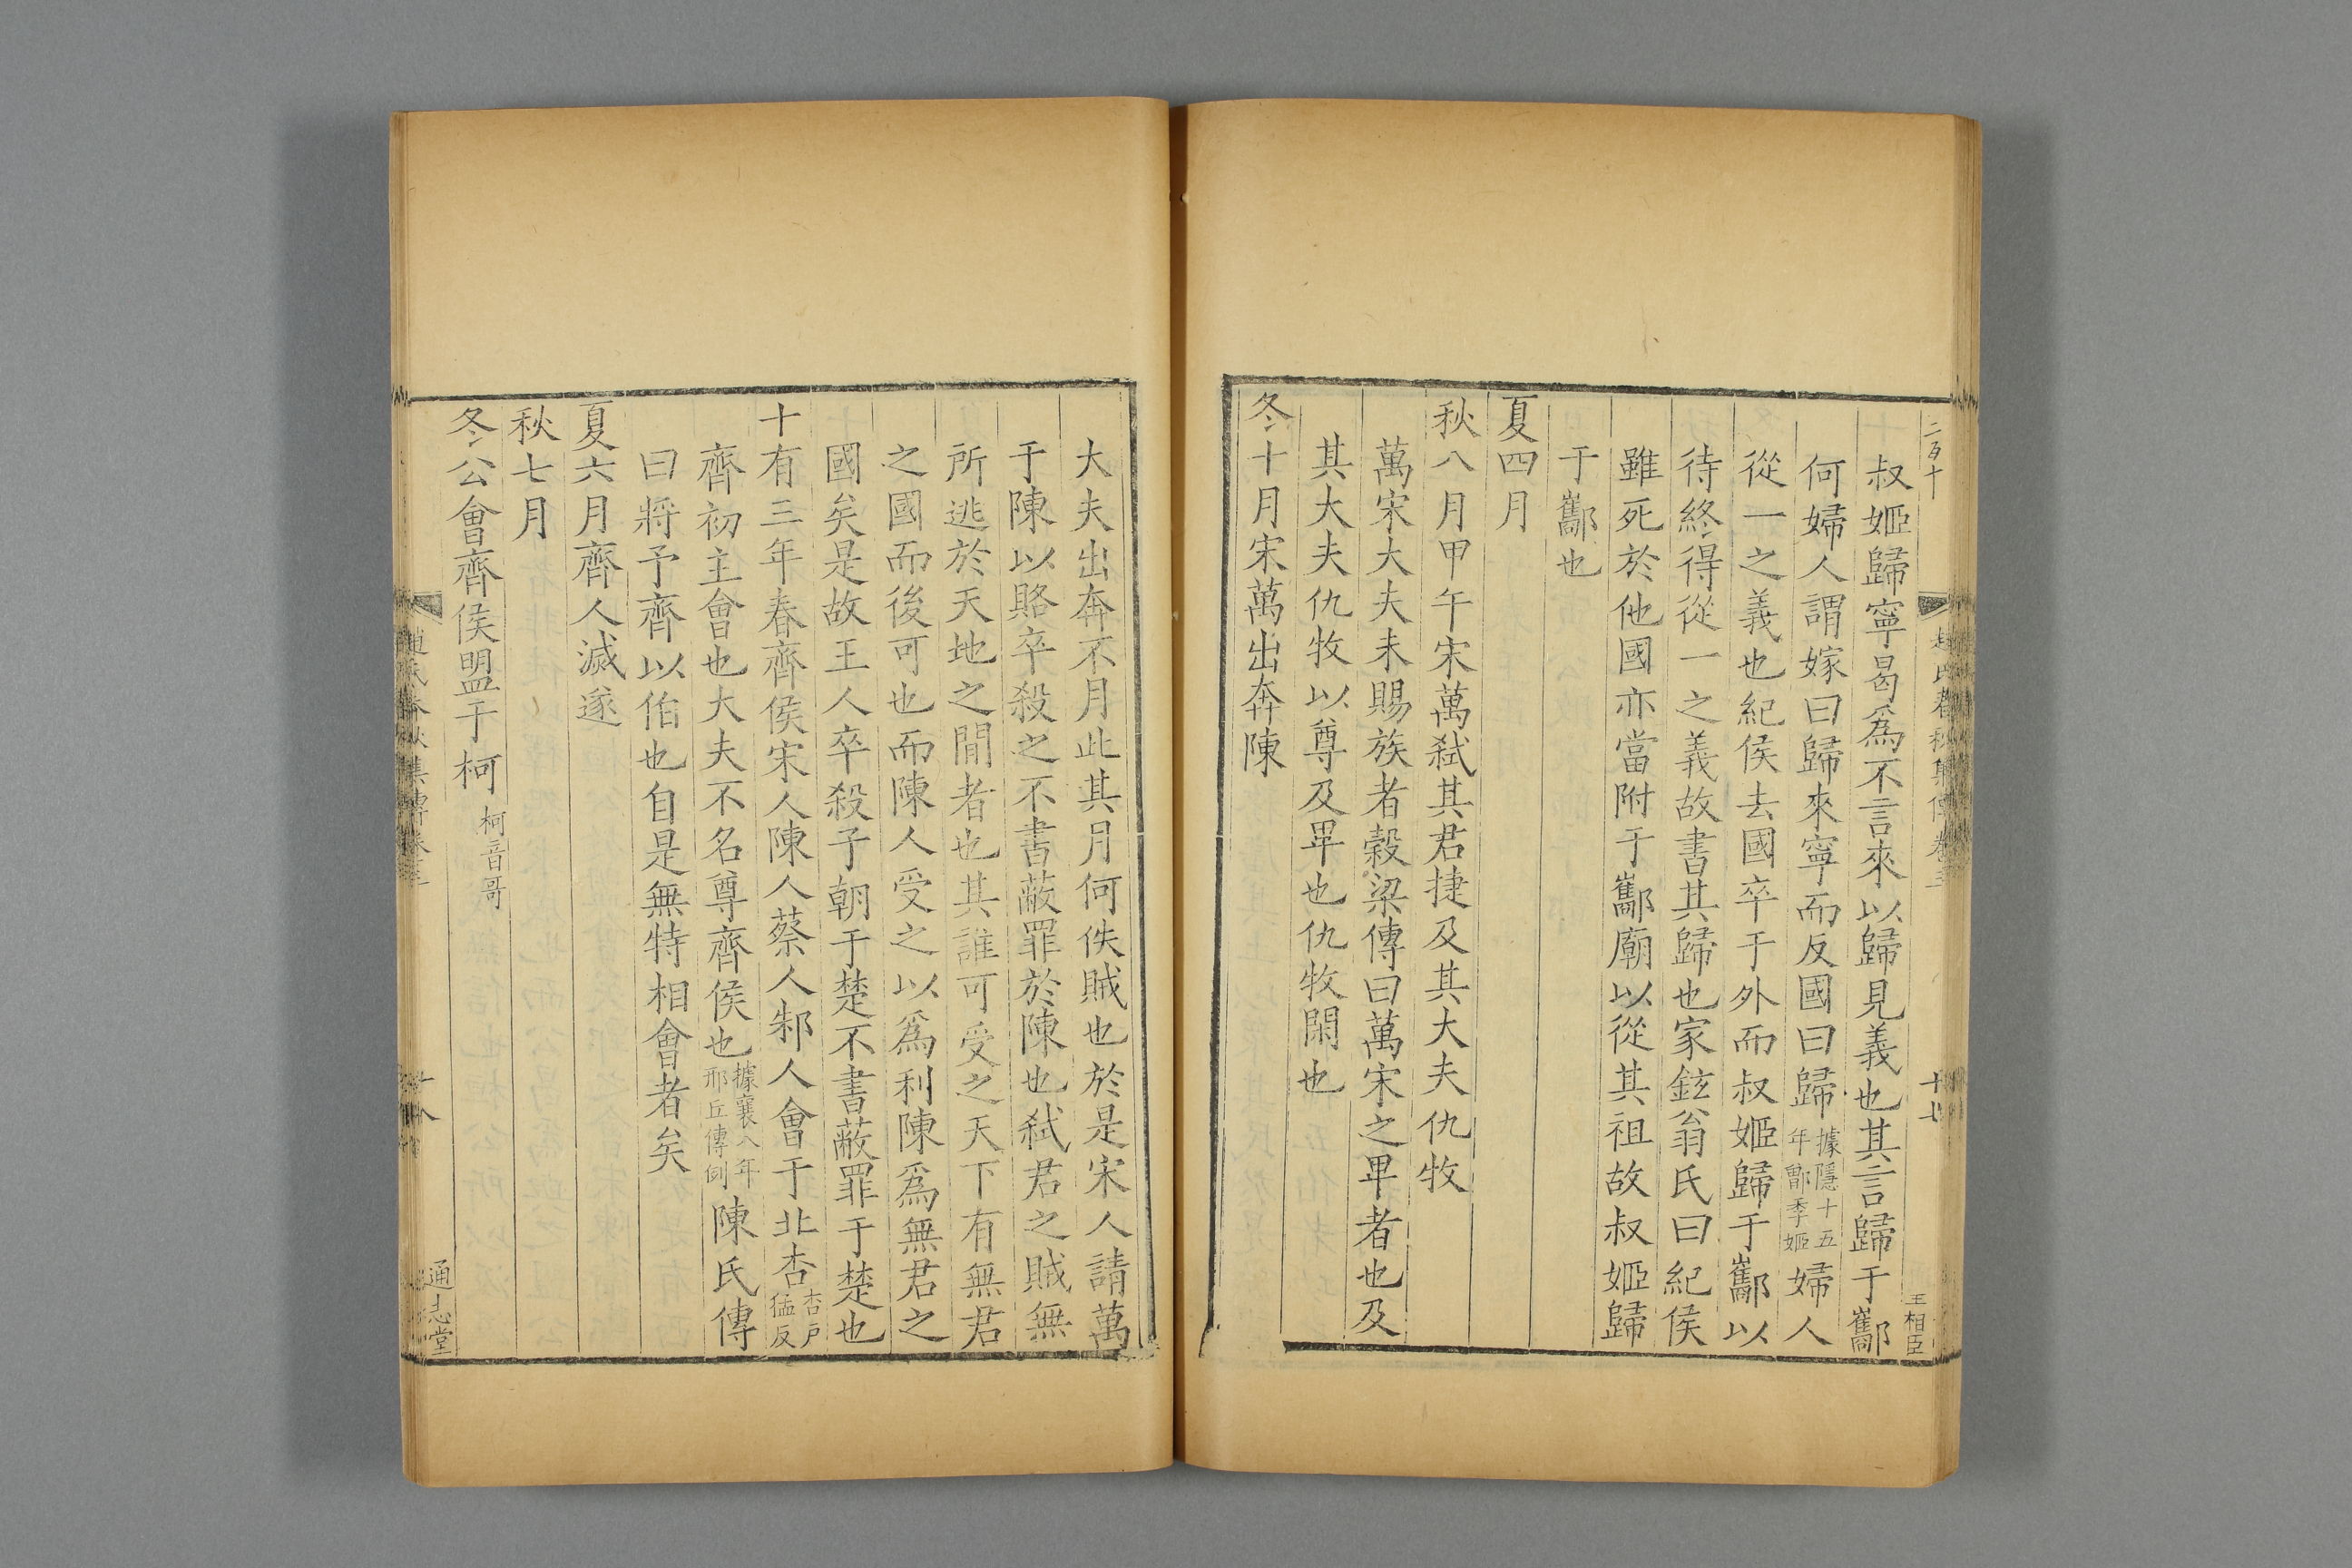 二百十
趙氏春秋集傳卷三
十七
王相臣
叔姬歸寧曷爲不言來以歸見義也其言歸于酅
何婦人謂嫁曰歸來寧而反國曰歸據隱十五年鄫季姬婦人
從一之義也紀侯去國卒于外而叔姬歸于酅以
待終得從一之義故書其歸也家鉉翁氏曰紀侯
雖死於他國亦當附于酅廟以從其祖故叔姬歸
于酅也
夏四月
秋八月甲午宋萬弑其君捷及其大夫仇牧
萬宋大夫未賜族者穀梁傳曰萬宋之卑者也及
其大夫仇牧以尊及卑也仇牧閑也
冬十月宋萬出奔陳
大夫出奔不月此其月何佚賊也於是宋人請萬
于陳以賂卒殺之不書蔽罪於陳也弑君之賊無
所逃於天地之閒者也其誰可受之天下有無君
之國而後可也而陳人受之以爲利陳爲無君之
國矣是故王人卒殺子朝于楚不書蔽罪于楚也
十有三年春齊侯宋人陳人蔡人邾人會于北杏杏戶猛反
齊初主會也大夫不名尊齊侯也據襄八年邢丘傳例陳氏傳
曰將予齊以伯也自是無特相會者矣
夏六月齊人滅遂
秋七月
冬公會齊侯盟于柯柯音哥
趙氏春秋集傳卷三
十八
通志堂